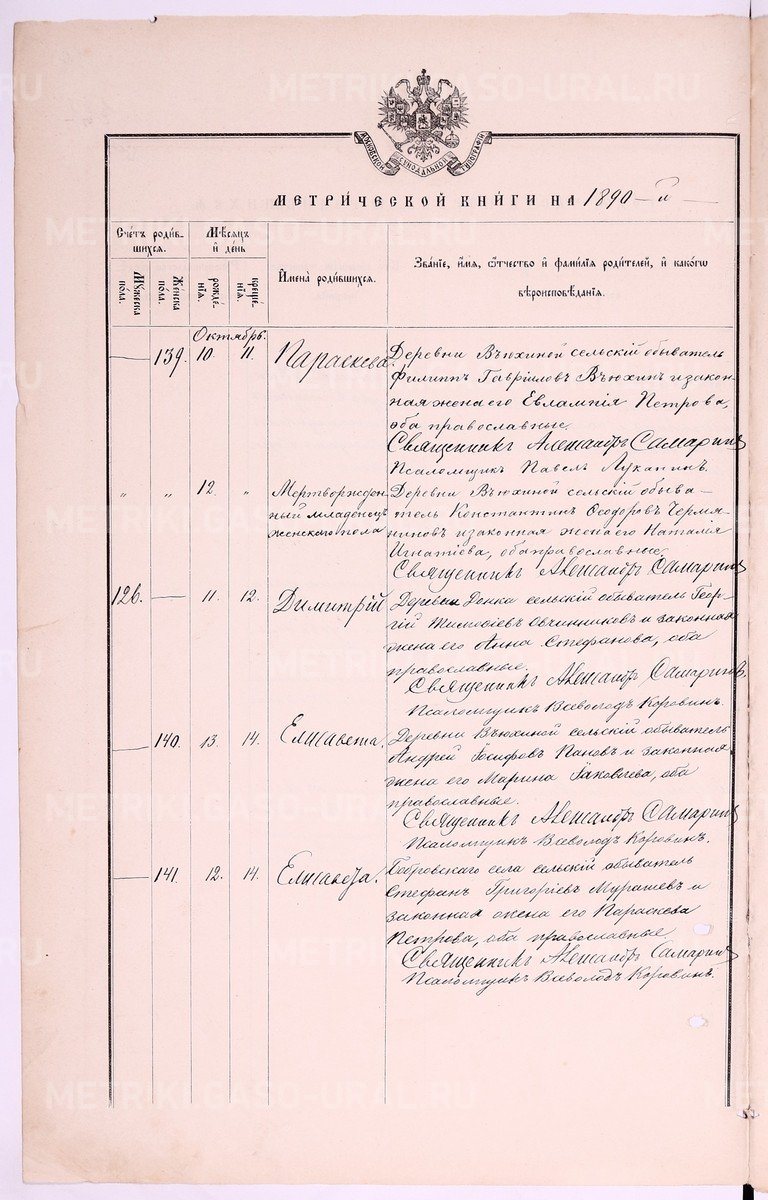 METRIKI.GASO-URAL.RU
МОСКОВСКОЙ СѴНОДАЛЬНОЙ ТИПОГРАФІИ
МЕТРИ́ЧЕСКОЙ КНИ́ГИ НА 1890-й
Сче́тъ роди́в-
шихся.
Мꙋжеска
по́ла.
Же́нска
по́ла.
Мѣ́сяцъ
и де́нь
рожде-
нїѧ.
креще-
нїѧ.
Имена̀ роди́вшихся.
Зва́нїе, и́мя, ѻ́тчество и фами́лїя роди́телей, и како́гѡ
вѣроисповѣ́данїя.
Октябрь.
— 139. 10. 11. Параскева.
Деревни Вьюхиной сельскій обыватель
Филиппъ Гавріиловъ Вьюхинъ и закон-
ная жена его Евлампія Петрова,
оба православные.
Священникъ Александръ Самаринъ
Псаломщикъ Павелъ Лукапинъ.
„ „ 12. „ Мертворжден-
ный младенецъ
женскаго пола
Деревни Вьюхиной сельскій обыва-
тель Константинъ Ѳеодоровъ Черма-
ниновъ и законная жена его Наталія
Игнатіева, оба православные.
Священникъ Александръ Самаринъ
126. — 11. 12. Димитрій
Деревни сельскій обыватель Геор-
гій Тимоѳіевъ Овчинниковъ и законная
жена его Анна Стефанова, оба
православные.
Священникъ Александръ Самаринъ.
Псаломщикъ Всеволодъ Коровинъ.
— 140. 13. 14. Елисавета.
Деревни Вьюхиной сельскій обыватель
Андрей Іосифовъ Пановъ и законная
жена его Марина Іаковлева, оба
православные.
Священникъ Александръ Самаринъ
Псаломщикъ Всеволодъ Коровинъ.
— 141. 12. 14. Елисавета.
села сельскій обыватель
Стефанъ Григоріевъ Мурашевъ и
законная жена его Параскева
Петрова, оба православные.
Священникъ Александръ Самаринъ
Псаломщикъ Всеволодъ Коровинъ.